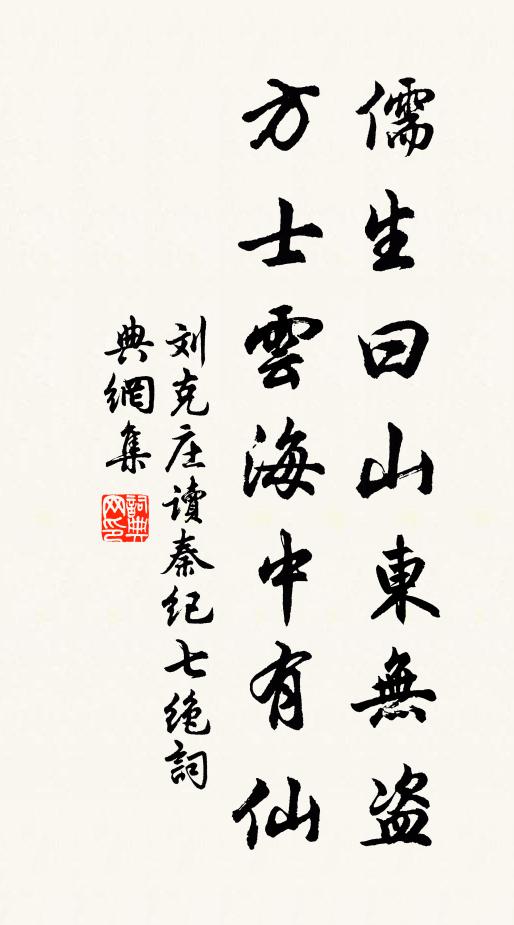 儒生曰山東無盗
方士雲海中有仙
刘克庄讀秦纪七绝詞
典網集
詞典網印